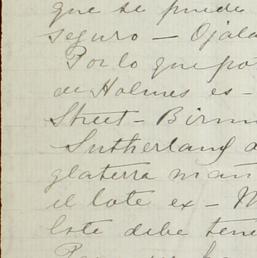 que se puede
seguro - Ojala
Por lo que po
de Holmes es -
Street - Birm
Sutherland a
glaterra mañ
el lote ex - M
lote debe tene